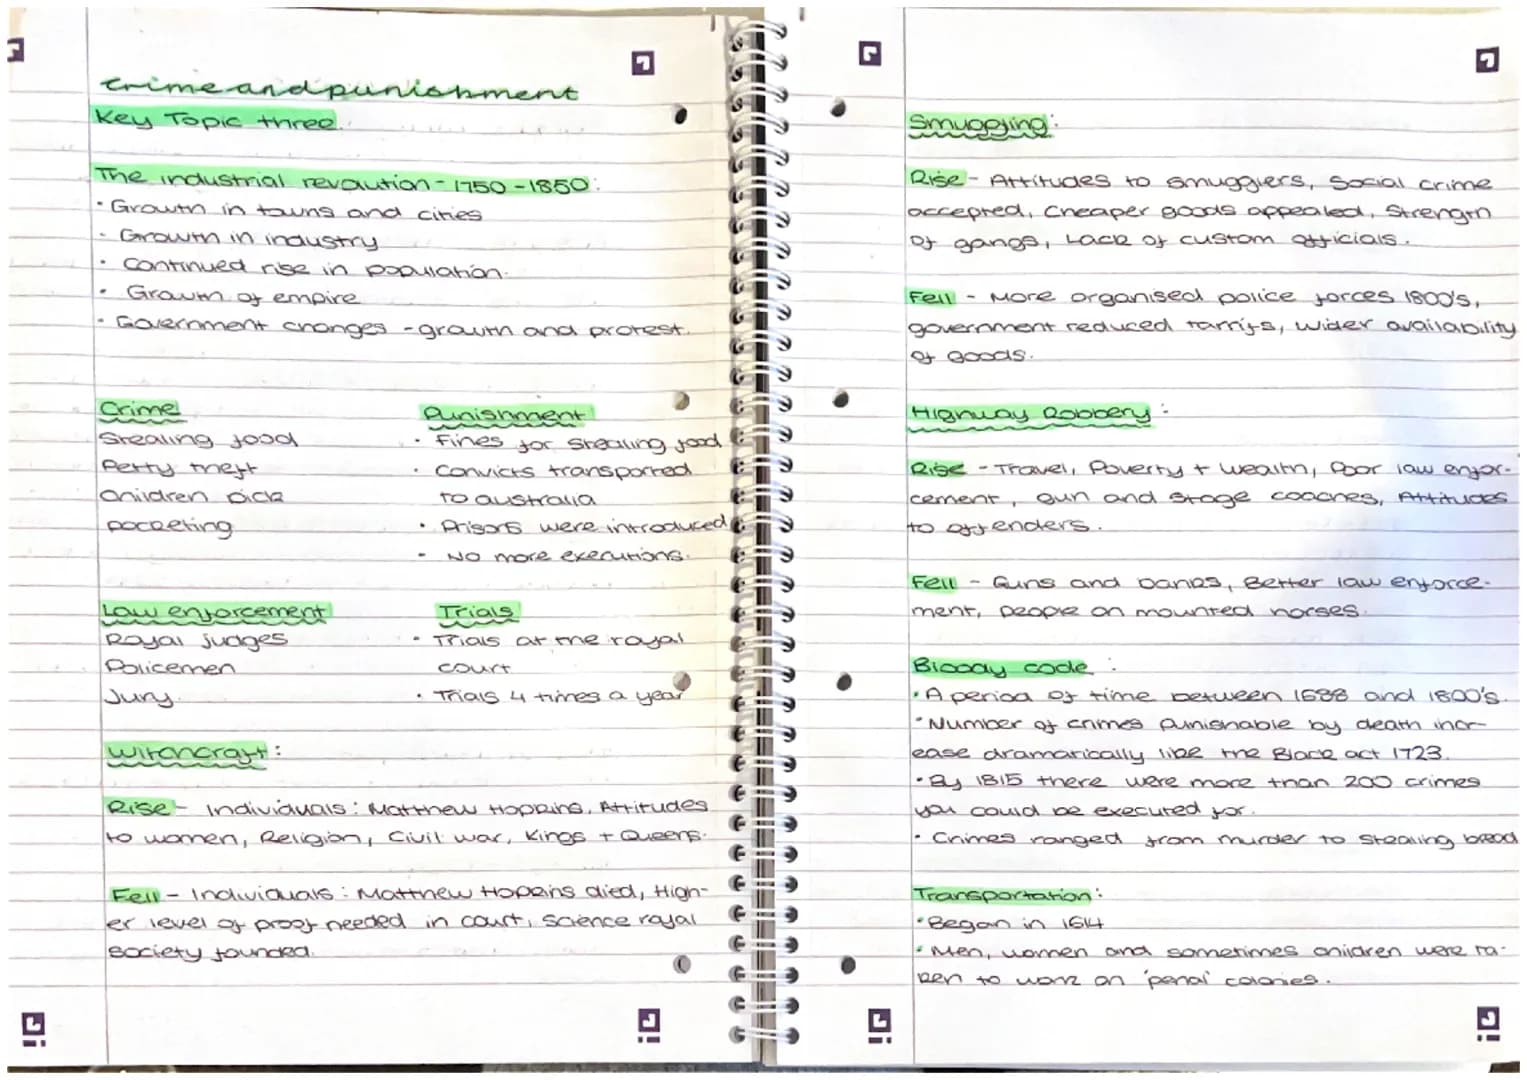 Crime and punishment
Key Topic three.
The industrial revolution - 1750 - 1850:
· Growth in towns and cities
· Growth in industry
· Continued rise in population.
· Growth of empire
· Government changes - growth and protest.
Crime
Stealing food
Petty theft
Children pick
pocketing
Punishment
· Fines for stealing food
· Convicts transported
to australia
· Prisons were introduced
· No more executions.
Law enforcement
Royal judges
Policemen
Jury.
Trials
· Trials at the royal
court
· Trials 4 times a year
Witchcraft:
Rise - Individuals: Matthew Hopkins, Attitudes
to women, Religion, Civil war, Kings + Queens.
Fell - Individuals: Matthew Hopkins died, High-
er level of proof needed in court, Science royal
society founded.
Smuggling:
Rise - Attitudes to smugglers, Social crime
accepted, Cheaper goods appealed, Strength
of gangs, Lack of custom officials.
Fell - More organised police forces 1800's,
government reduced tarrifs, wider availability
of goods.
Highway Robbery:
Rise - Travel, Poverty + wealth, Poor law enfor-
cement, gun and stage coaches, Attitudes
to offenders.
Fell - Guns and banks, Better law enforce-
ment, people on mounted horses.
Bloody code:
· A period of time between 1688 and 1800's.
· Number of crimes punishable by death incr-
ease dramatically like the Black act 1723.
· By 1815 there were more than 200 crimes
you could be executed for.
· Crimes ranged from murder to stealing bread
Transportation:
· Began in 1614
· Men, women and sometimes children were ta-
ken to work on 'penal' colonies.